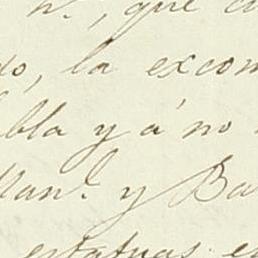 nº, que
do, la excom
bla y á no
Man.l y Ba
estatuas. e